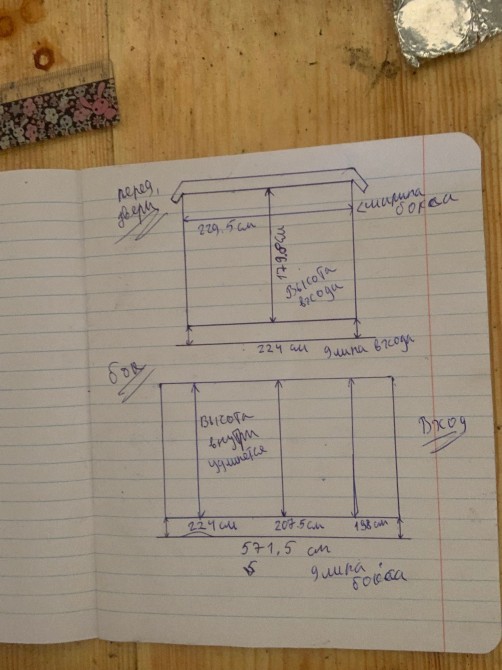 перед,
двери
ширина
бокса
229.5 см
179,5 см
Высота
входа
224 см длина входа
бок
Высота
внутри
удлиняется
Вход
224 см 207.5см 198 см
571,5 см
5
длина
бокса